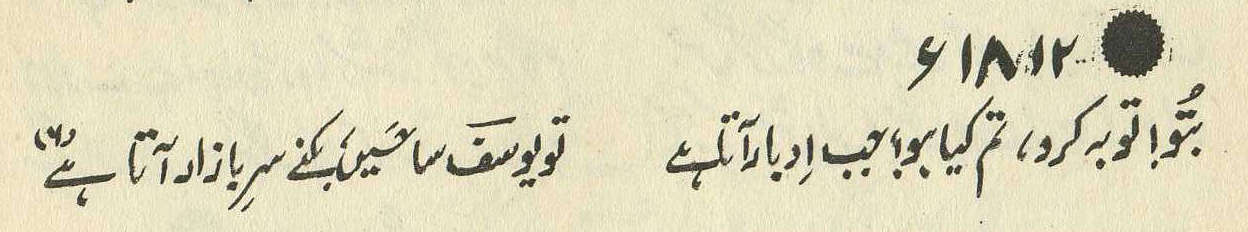 ۱۸۱۲ء
بُتو! توبہ کرو، تم کیا ہو، جب اِدبار آتا ہے تو یوسف سا حَسیں بکنے سرِ بازار آتا ہے